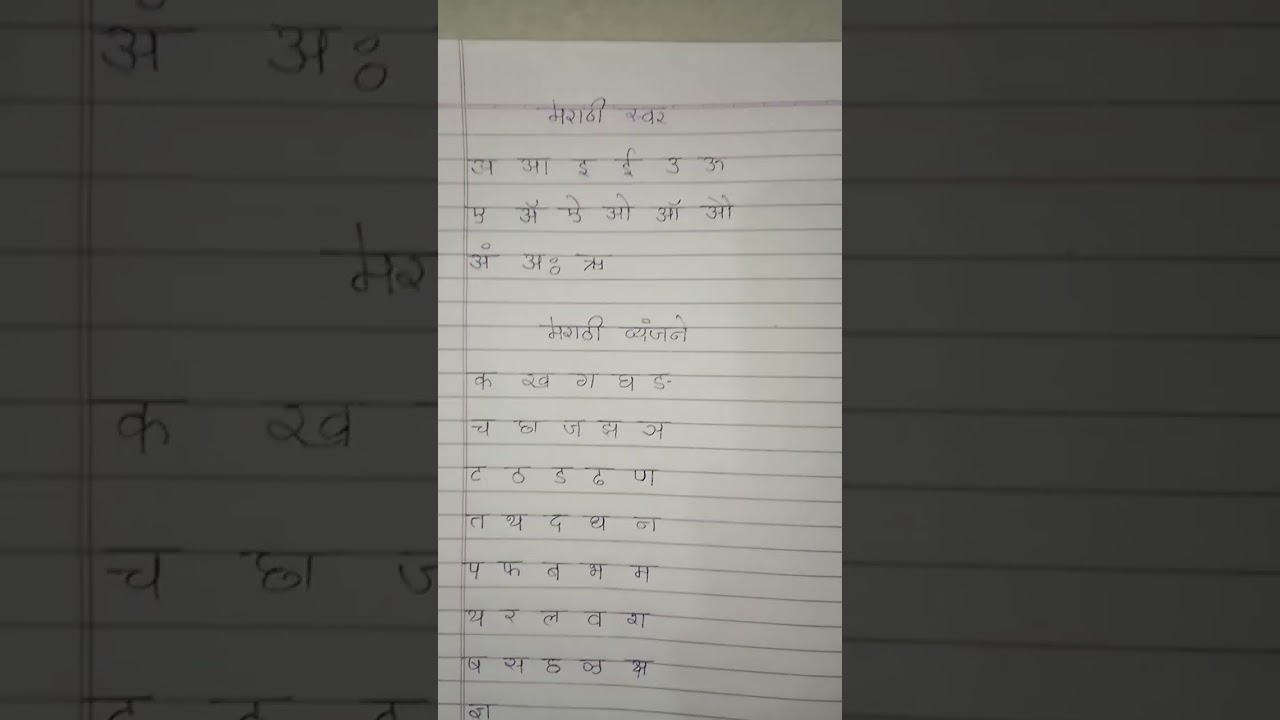 मराठी स्वर
अ आ इ ई उ ऊ
ए ॲ ऐ ओ ऑ औ
अं अः ऋ
मराठी व्यंजने
क ख ग घ ङ
च छ ज झ ञ
ट ठ ड ढ ण
त थ द ध न
प फ ब भ म
य र ल व श
ष स ह ळ क्ष
ज्ञ